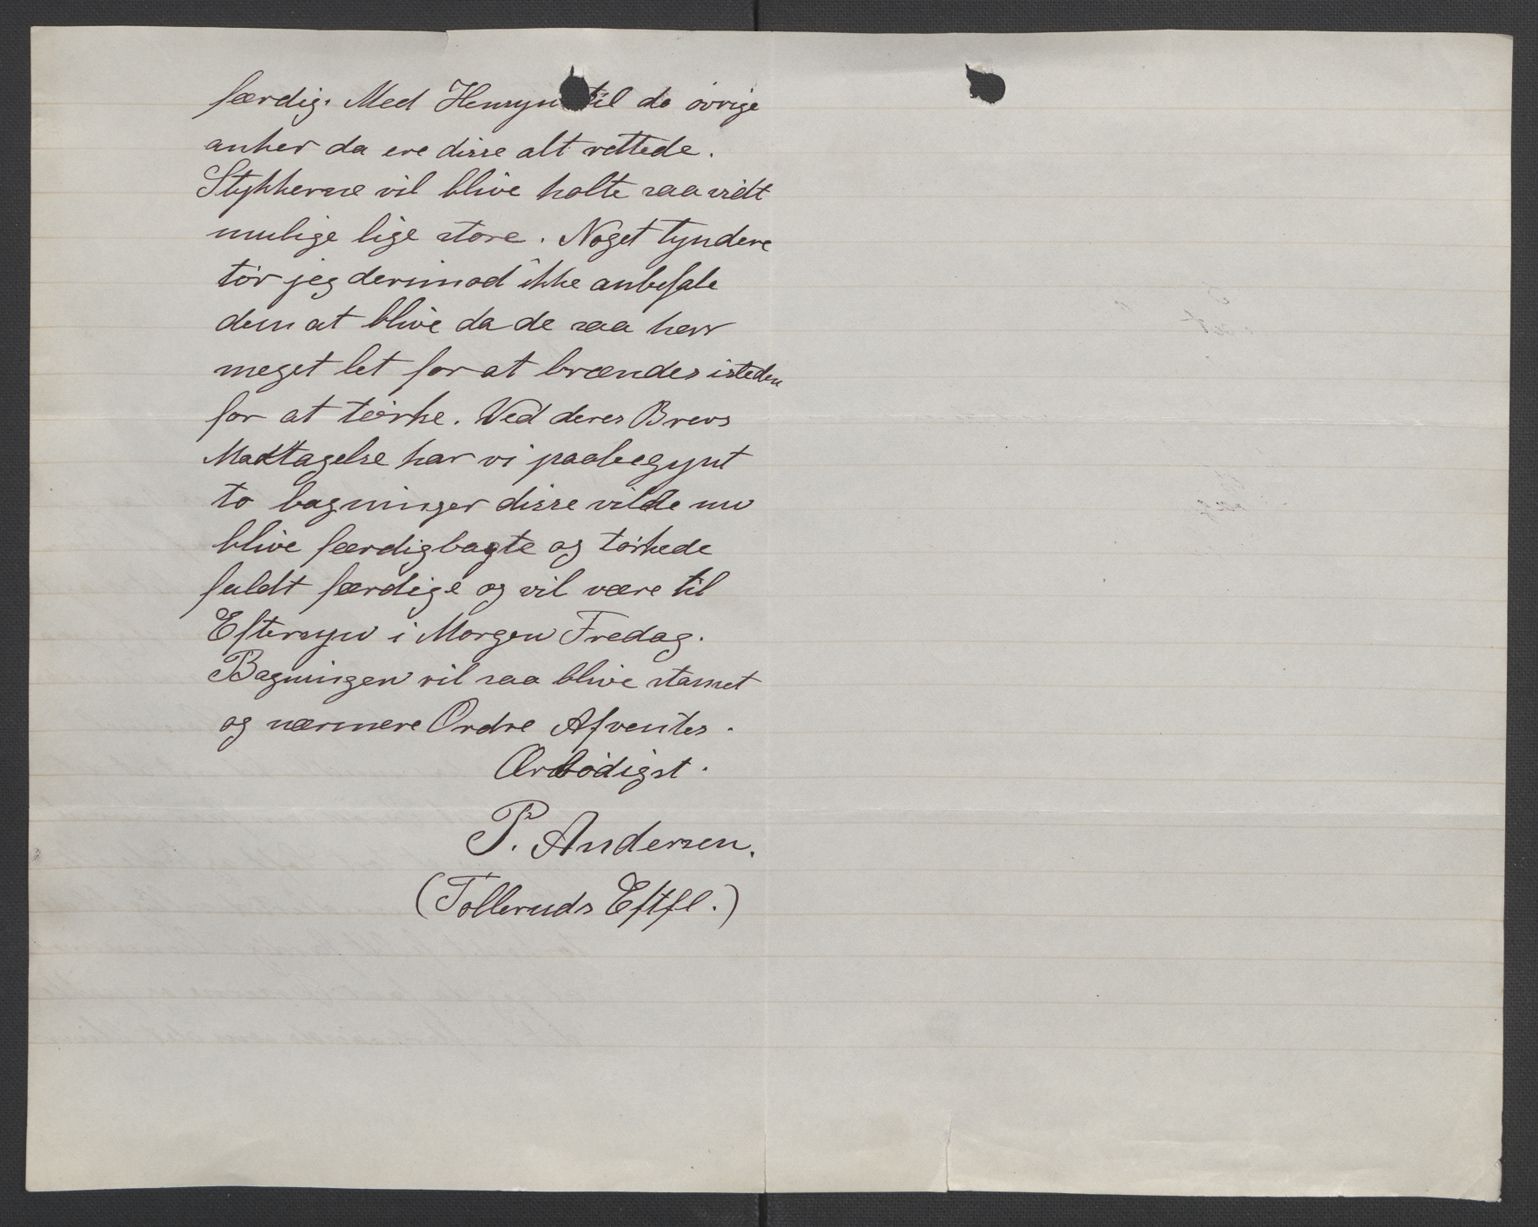 færdig. Med Hensyn til de øvrige
anker da ere disse alt rettede.
Stykkerne vil blive holte saavidt
mulige lige store. Noget tyndere
tør jeg derimod ikke anbefale
dem at blive da de saa har
meget let for at brændes isteden
for at tørke. Ved deres Brevs
Modtagelse har vi paabegynt
to bagninger disse vilde nu
blive færdigbagte og tørkede
fuldt færdige og vil være til
Eftersyn i Morgen Fredag.
Bagningen vil saa blive stanset
og nærmere Ordre Afventes.
Ærbødigst.
P. Andersen.
(Tolleruds Eftfl.)